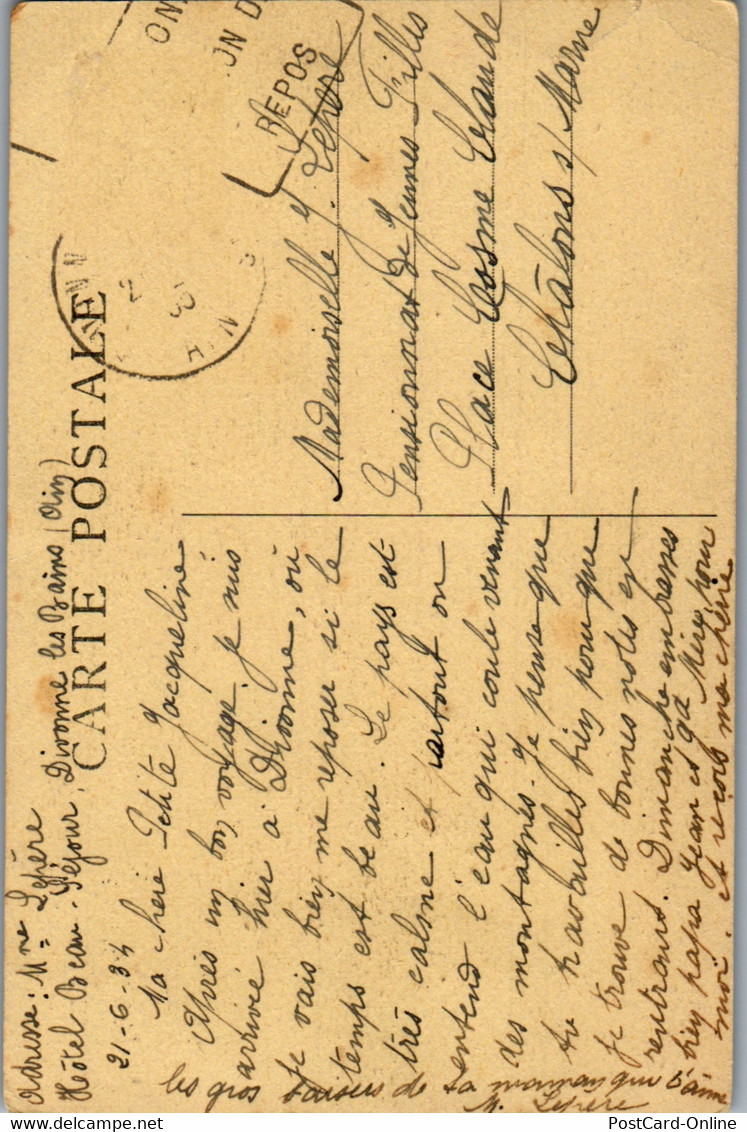 Adresse : Mme Lepère
Hôtel Beau-Séjour, Divonne les Bains (Ain)
CARTE POSTALE
21-6-34
Ma chérie Petite Jacqueline
Après un bon voyage, je suis
arrivée hier à Divonne, où
je vais bien me reposer si le
temps est beau. Le pays est
très calme et partout on
entend l'eau qui coule venant
des montagnes. Je pense que
tu travailles bien pour que
je trouve de bonnes notes en
rentrant. Dimanche embrasses
bien papa Jean et Mère pour
moi, et reçois ma chérie
les gros baisers de ta maman qui t'aime
M. Lepère
REPOS
Mademoiselle J. Lepère
Pensionnat de Jeunes Filles
Place Cosme Claude
Châlons s/ Marne
PostCard-Online